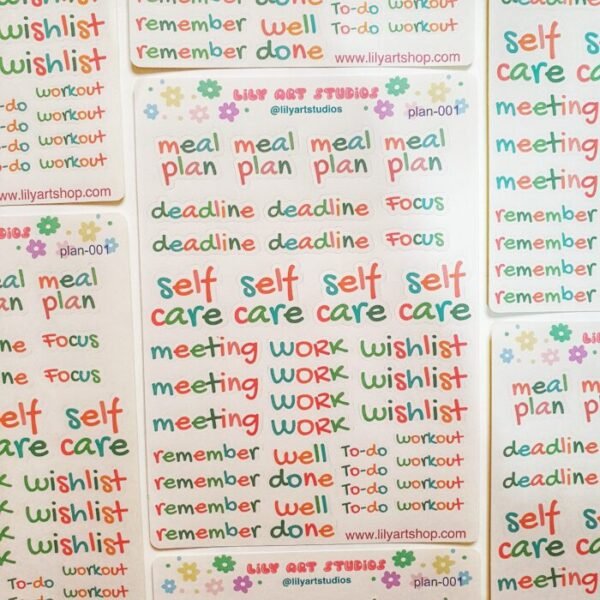 wishlist
wishlist
workout
workout
workout
workout
www.lilyartshop.com
remember well To-do workout
remember done
www.lilyartshop.com
self
care
meeting
meeting
meeting
remember
remember
remember
remember
LILY ART STUDIOS
@lilyartstudios
plan-001
meal meal meal meal
plan plan plan plan
deadline deadline Focus
deadline deadline Focus
self self self self
care care care care
meeting work wishlist
meeting work wishlist
meeting work wishlist
remember well To-do workout
remember done To-do workout
remember well To-do workout
remember done To-do workout
www.lilyartshop.com
plan-001
meal
plan
Focus
Focus
self
care
wishlist
wishlist
wishlist
To-do workout
To-do workout
meal
plan
deadline
deadline
self
care
meeting
LILY ART STUDIOS
@lilyartstudios
plan-001